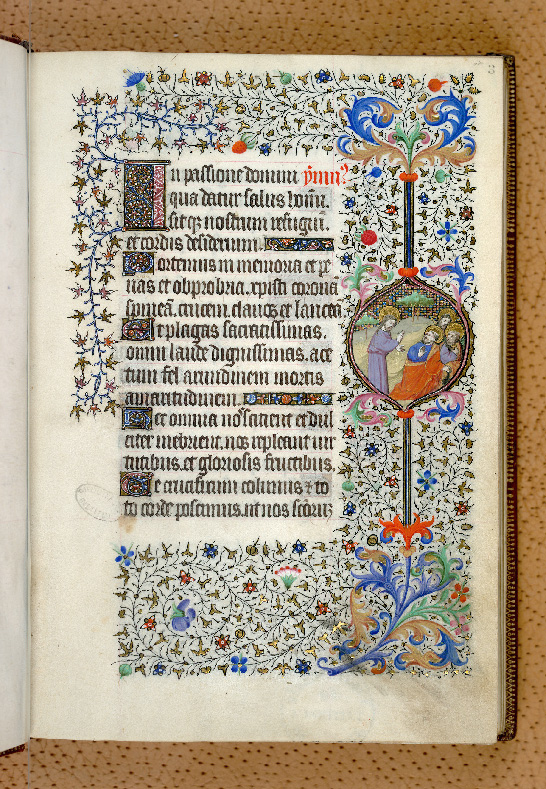 In passione domini ymn9
qua datur salus homī.
sitqȝ nostrum refugiū
et cordis desiderium.
Portemus in memoria et pe
nas et obprobria. xpisti corona
spineā. crucem. clauos. et lancea
Et plagas sacratissimas.
omni laude dignissimas. ace
tum fel arundinem mortis
amaritudinem.
Hec omnia nos sacient et dul
citer inebrient. nos repleant uir
tutibus. et gloriosis fructibus.
Te crucifixum colimus et to
to corde poscimus. ut nos sctōrȝ